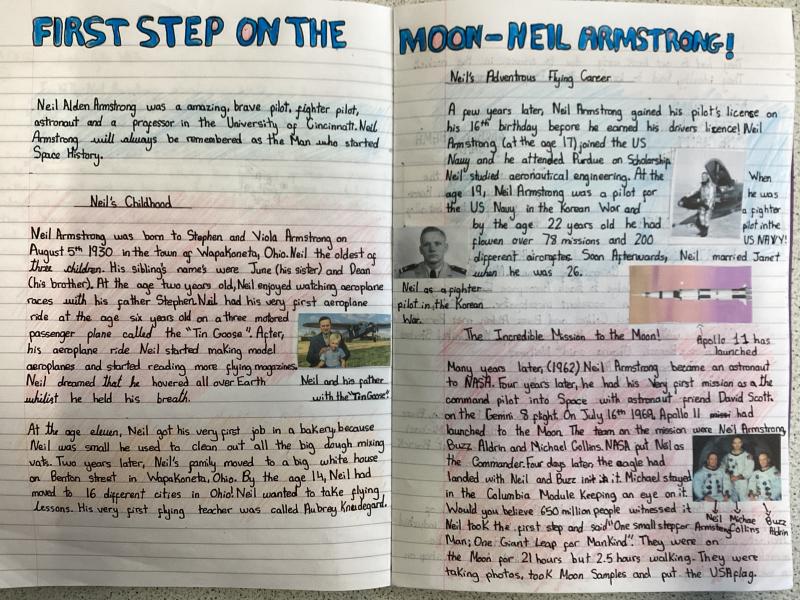 FIRST STEP ON THE MOON - NEIL ARMSTRONG!
Neil Alden Armstrong was a amazing, brave pilot, fighter pilot,
astronaut and a professor in the University of Cincinnati. Neil
Armstrong will always be remembered as the Man who started
Space History.
Neil's Childhood
Neil Armstrong was born to Stephen and Viola Armstrong on
August 5th 1930 in the town of Wapakoneta, Ohio. Neil the oldest of
three children. His sibling's name's were June (his sister) and Dean
(his brother). At the age two years old, Neil enjoyed watching aeroplane
races with his father Stephen. Neil had his very first aeroplane
ride at the age six years old on a three motored
passenger plane called the "Tin Goose". After,
his aeroplane ride Neil started making model
aeroplanes and started reading more flying magazines.
Neil dreamed that he hovered all over Earth
whilst he held his breath.
Neil and his father
with the "Tin Goose"
At the age eleven, Neil got his very first job in a bakery, because
Neil was small he used to clean out all the big dough mixing
vats. Two years later, Neil's family moved to a big white house
on Benton street in Wapakoneta, Ohio. By the age 14, Neil had
moved to 16 different cities in Ohio! Neil wanted to take flying
lessons. His very first flying teacher was called Aubrey Knudegard.
Neil's Adventrous Flying Career
A few years later, Neil Armstrong gained his pilot's license on
his 16th birthday before he earned his drivers licence! Neil
Armstrong (at the age 17) joined the US
Navy and he attended Purdue on Scholarship
Neil studied aeronautical engineering. At the
age 19, Neil Armstrong was a pilot for
the US Navy in the Korean War and
by the age 22 years old he had
flowen over 78 missions and 200
different aircraftes. Soon Afterwards, Neil married Janet
when he was 26.
When
he was
a fighter
pilot in the
US NAVY!
Neil as a fighter
pilot in the Korean
War.
The Incredible Mission to the Moon!
Apollo 11 has
launched
Many years later, (1962) Neil Armstrong became an astronaut
to NASA. Four years later, he had his very first mission as a the
command pilot into Space with astronaut friend David Scott
on the Gemini 8 flight. On July 16th 1969, Apollo 11 had
launched to the Moon. The team on the mission were Neil Armstrong,
Buzz Aldrin and Michael Collins. NASA put Neil as
the Commander. Four days later, the eagle had
landed with Neil and Buzz in it. Michael stayed
in the Columbia Module Keeping an eye on it.
Would you believe 650 million people witnessed it
Neil took the first step and said "One small step for
Man; One Giant Leap for Mankind". They were on
the Moon for 21 hours but 2.5 hours walking. They were
taking photos, took Moon Samples and put the USA flag.
Neil
Armstrong
Michae
Collins
Buzz
Aldrin